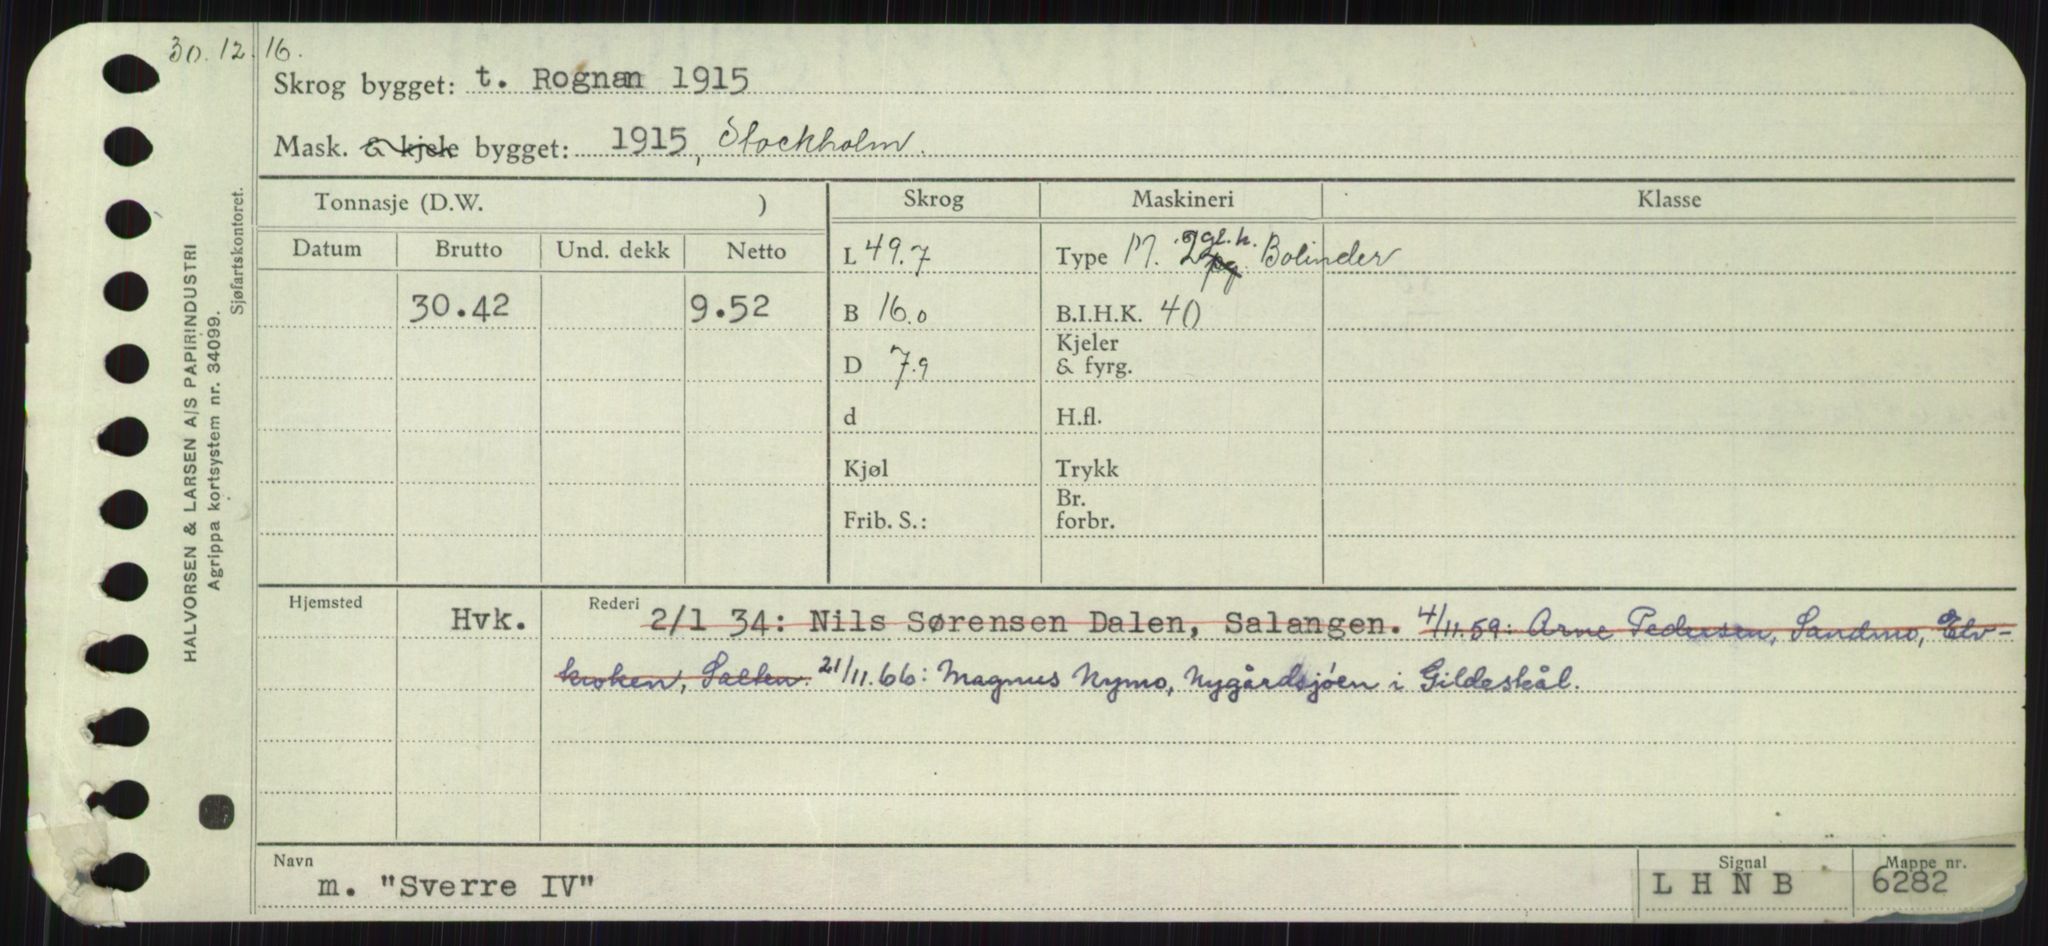 30.12.16.
Skrog bygget: t. Rognan 1915
Mask. & kjele bygget: 1915, Stockholm.
Tonnasje (D.W. ) Skrog Maskineri Klasse
Datum Brutto Und. dekk Netto
L 49.7 Type M. 2 gl.h. Bolinder
30.42 9.52 B 16.0 B.I.H.K. 40
D 7.9 Kjeler & fyrg.
d H.fl.
Kjøl Trykk
Frib. S.: Br. forbr.
Hjemsted Rederi
Hvk. 2/1 34: Nils Sørensen Dalen, Salangen. 4/11.59: Arne Pedersen, Sandmo, Elv-
kroken, Salten. 21/11.66: Magnus Nymo, Nygårdsjøen i Gildeskål.
Navn Signal Mappe nr.
m. "Sverre IV" L H N B 6282
HALVORSEN & LARSEN A/S PAPIRINDUSTRI
Agrippa kortsystem nr. 34099.
Sjøfartskontoret.